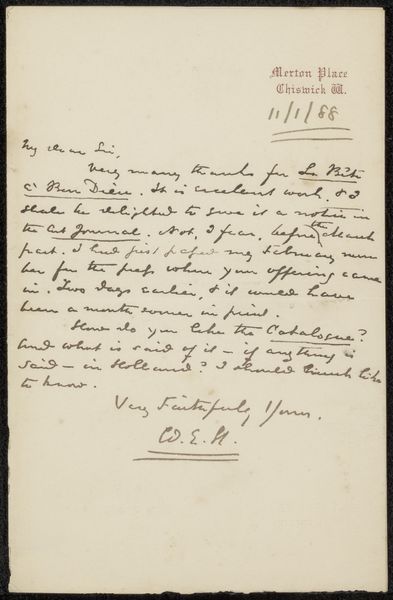 Merton Place
Chiswick W.
11/1/88
My dear Sir,
Very many thanks for La Bête
à Bon Dieu. It is excellent work, & I
shall be delighted to give it a notice in
the Art Journal. Not, I fear, before the March
part. I had just passed my February num
ber for the press when your offering came
in. Two days earlier, & it would have
been a month sooner in print.
How do you like the Catalogue?
And what is said of it – if anything is
said – in Holland? I should much like
to know.
Very faithfully Yours.
W.E.H.